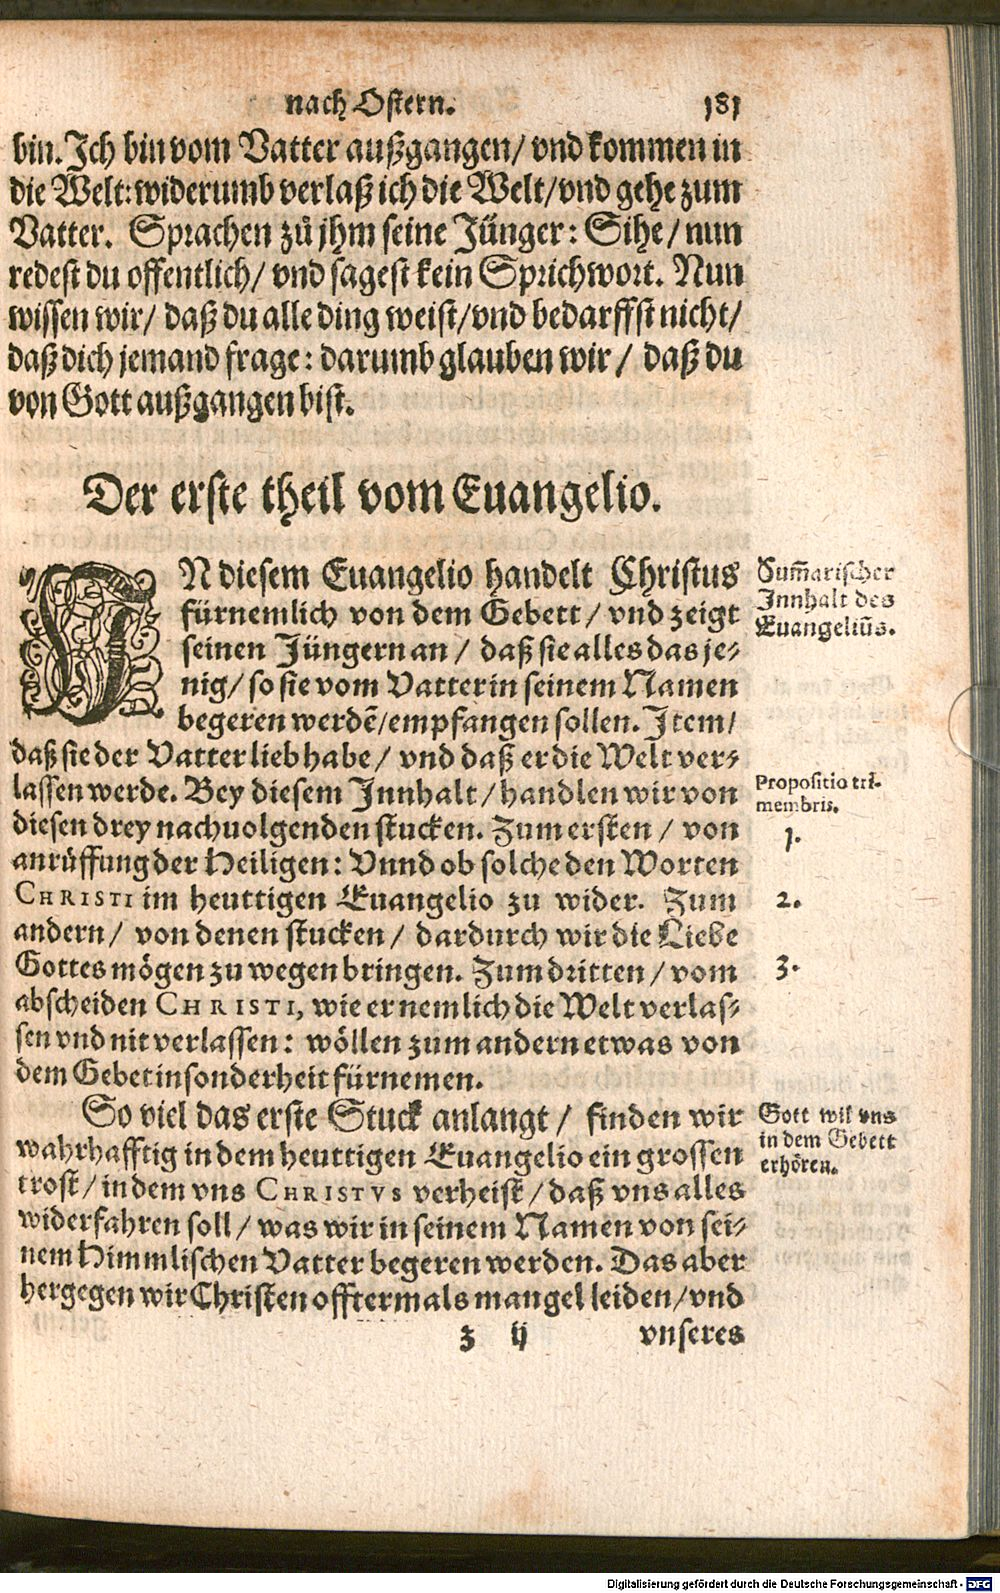 nach Ostern. 181
bin. Ich bin vom Vatter außgangen/ vnd kommen in
die Welt: widerumb verlaß ich die Welt/ vnd gehe zum
Vatter. Sprachen zů jhm seine Jünger: Sihe/ nun
redest du offentlich/ vnd sagest kein Sprichwort. Nun
wissen wir/ daß du alle ding weist/ vnd bedarffst nicht/
daß dich jemand frage: darumb glauben wir/ daß du
von Gott außgangen bist.
Der erste theil vom Euangelio.
IN diesem Euangelio handelt Christus
fürnemlich von dem Gebett/ vnd zeigt
seinen Jüngern an/ daß sie alles das je-
nig/ so sie vom Vatter in seinem Namen
begeren werdē/ empfangen sollen. Item/
daß sie der Vatter lieb habe/ vnd daß er die Welt ver-
lassen werde. Bey diesem Innhalt/ handlen wir von
diesen drey nachuolgenden stucken. Zum ersten/ von
anrüffung der Heiligen: Vnnd ob solche den Worten
CHRISTI im heuttigen Euangelio zu wider. Zum
andern/ von denen stucken/ dardurch wir die Liebe
Gottes mögen zu wegen bringen. Zum dritten/ vom
abscheiden CHRISTI, wie er nemlich die Welt verlas-
sen vnd nit verlassen: wöllen zum andern etwas von
dem Gebet insonderheit fürnemen.
So viel das erste Stuck anlangt/ finden wir
wahrhafftig in dem heuttigen Euangelio ein grossen
trost/ in dem vns CHRISTVS verheist/ daß vns alles
widerfahren soll/ was wir in seinem Namen von sei-
nem Himmlischen Vatter begeren werden. Das aber
hergegen wir Christen offtermals mangel leiden/ vnd
z ij vnseres
Sum̃arischer
Innhalt des
Euangeliũs.
Propositio tri-
membris.
1.
2.
3.
Gott wil vns
in dem Gebett
erhören.
Digitalisierung gefördert durch die Deutsche Forschungsgemeinschaft - DFG